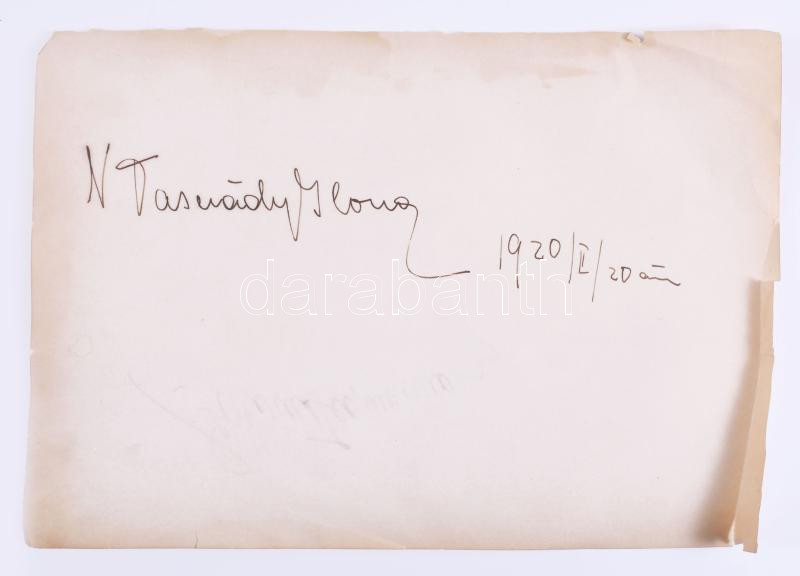 N Tasnády Ilona
1920/II/20án
darabanth